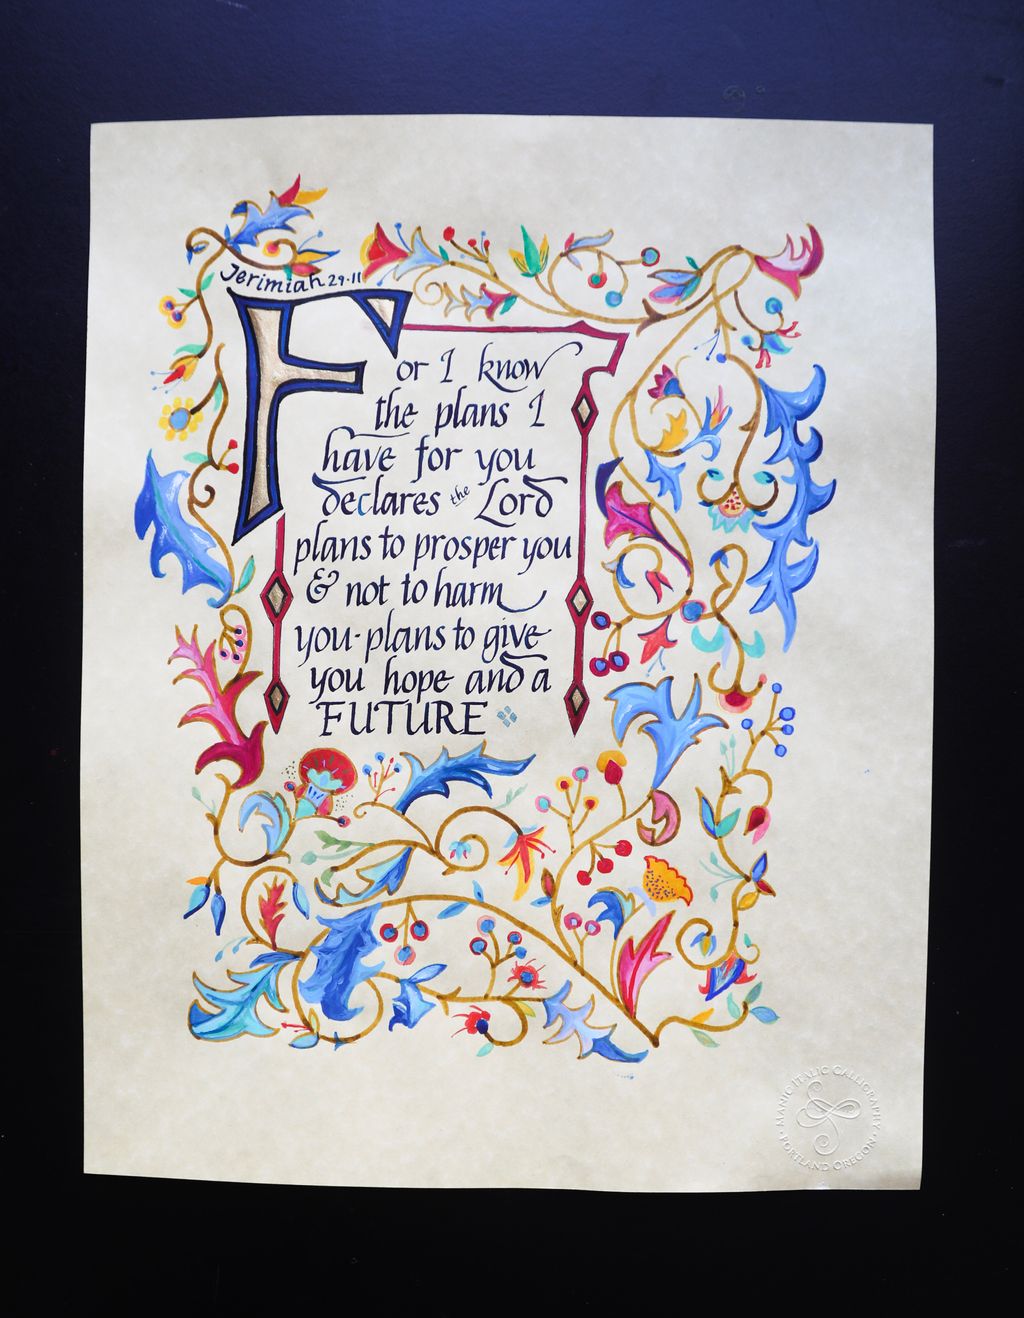 Jerimiah 29·11
For I know
the plans I
have for you
declares the Lord
plans to prosper you
& not to harm
you-plans to give
you hope and a
FUTURE
MANIC ITALIC CALLIGRAPHY
· PORTLAND OREGON ·